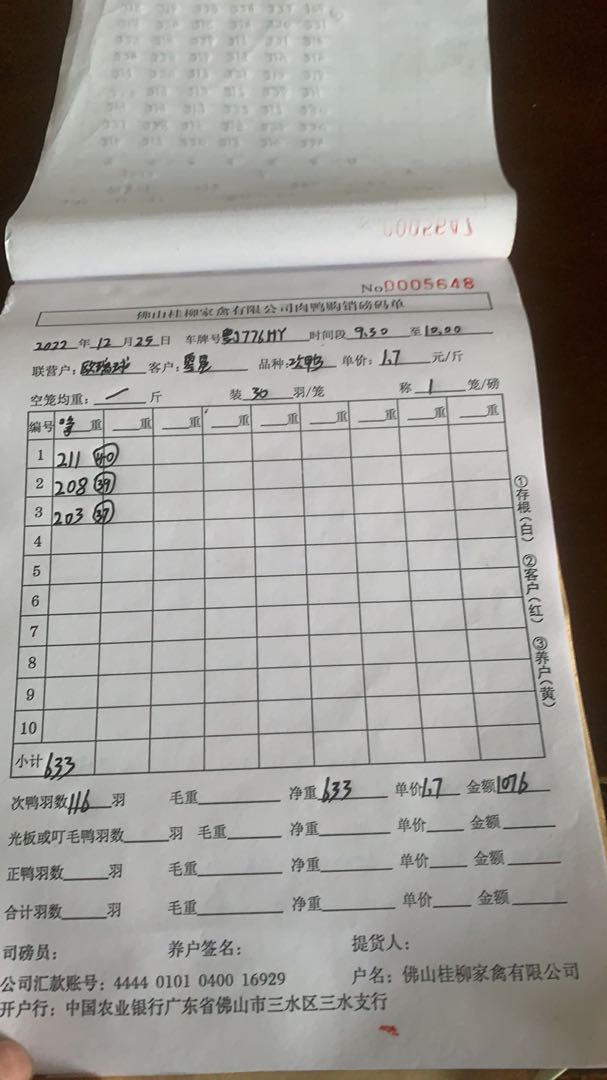 No0005648
佛山桂柳家禽有限公司肉鸭购销磅码单
2022年12月25日 车牌号粤J776MY 时间段9.30至10.00
联营户: 欧瑞球 客户: 品种:次鸭 单价: 1.7 元/斤
空笼均重: 一 斤 装 30 羽/笼 称 1 笼/磅
编号 净重 重 重 重 重 重 重 重 重
1 211 40
2 208 39
3 203 37
4
5
6
7
8
9
10
小计 633
①存根(白) ②客户(红) ③养户(黄)
次鸭羽数116羽 毛重 净重633 单价1.7 金额1076
光板或叮毛鸭羽数 羽 毛重 净重 单价 金额
正鸭羽数 羽 毛重 净重 单价 金额
合计羽数 羽 毛重 净重 单价 金额
司磅员: 养户签名: 提货人:
公司汇款账号: 4444 0101 0400 16929 户名: 佛山桂柳家禽有限公司
开户行: 中国农业银行广东省佛山市三水区三水支行